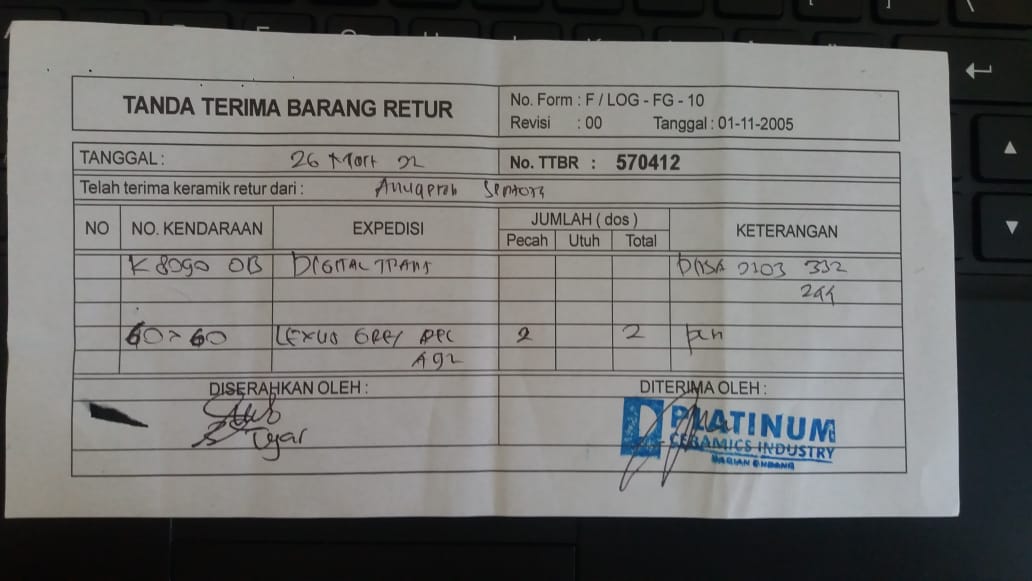 TANDA TERIMA BARANG RETUR
No. Form : F / LOG - FG - 10
Revisi : 00 Tanggal : 01-11-2005
TANGGAL : 26 Mart 22
No. TTBR : 570412
Telah terima keramik retur dari : Anugerah
NO NO. KENDARAAN EXPEDISI JUMLAH ( dos ) KETERANGAN
Pecah Utuh Total
K 8090 OB DIGITAL TRANS 0103 332
244
60x60 LEXUS GREY 2 2 pch
DISERAHKAN OLEH : DITERIMA OLEH :
PLATINUM
CERAMICS INDUSTRY
BAGIAN GUDANG